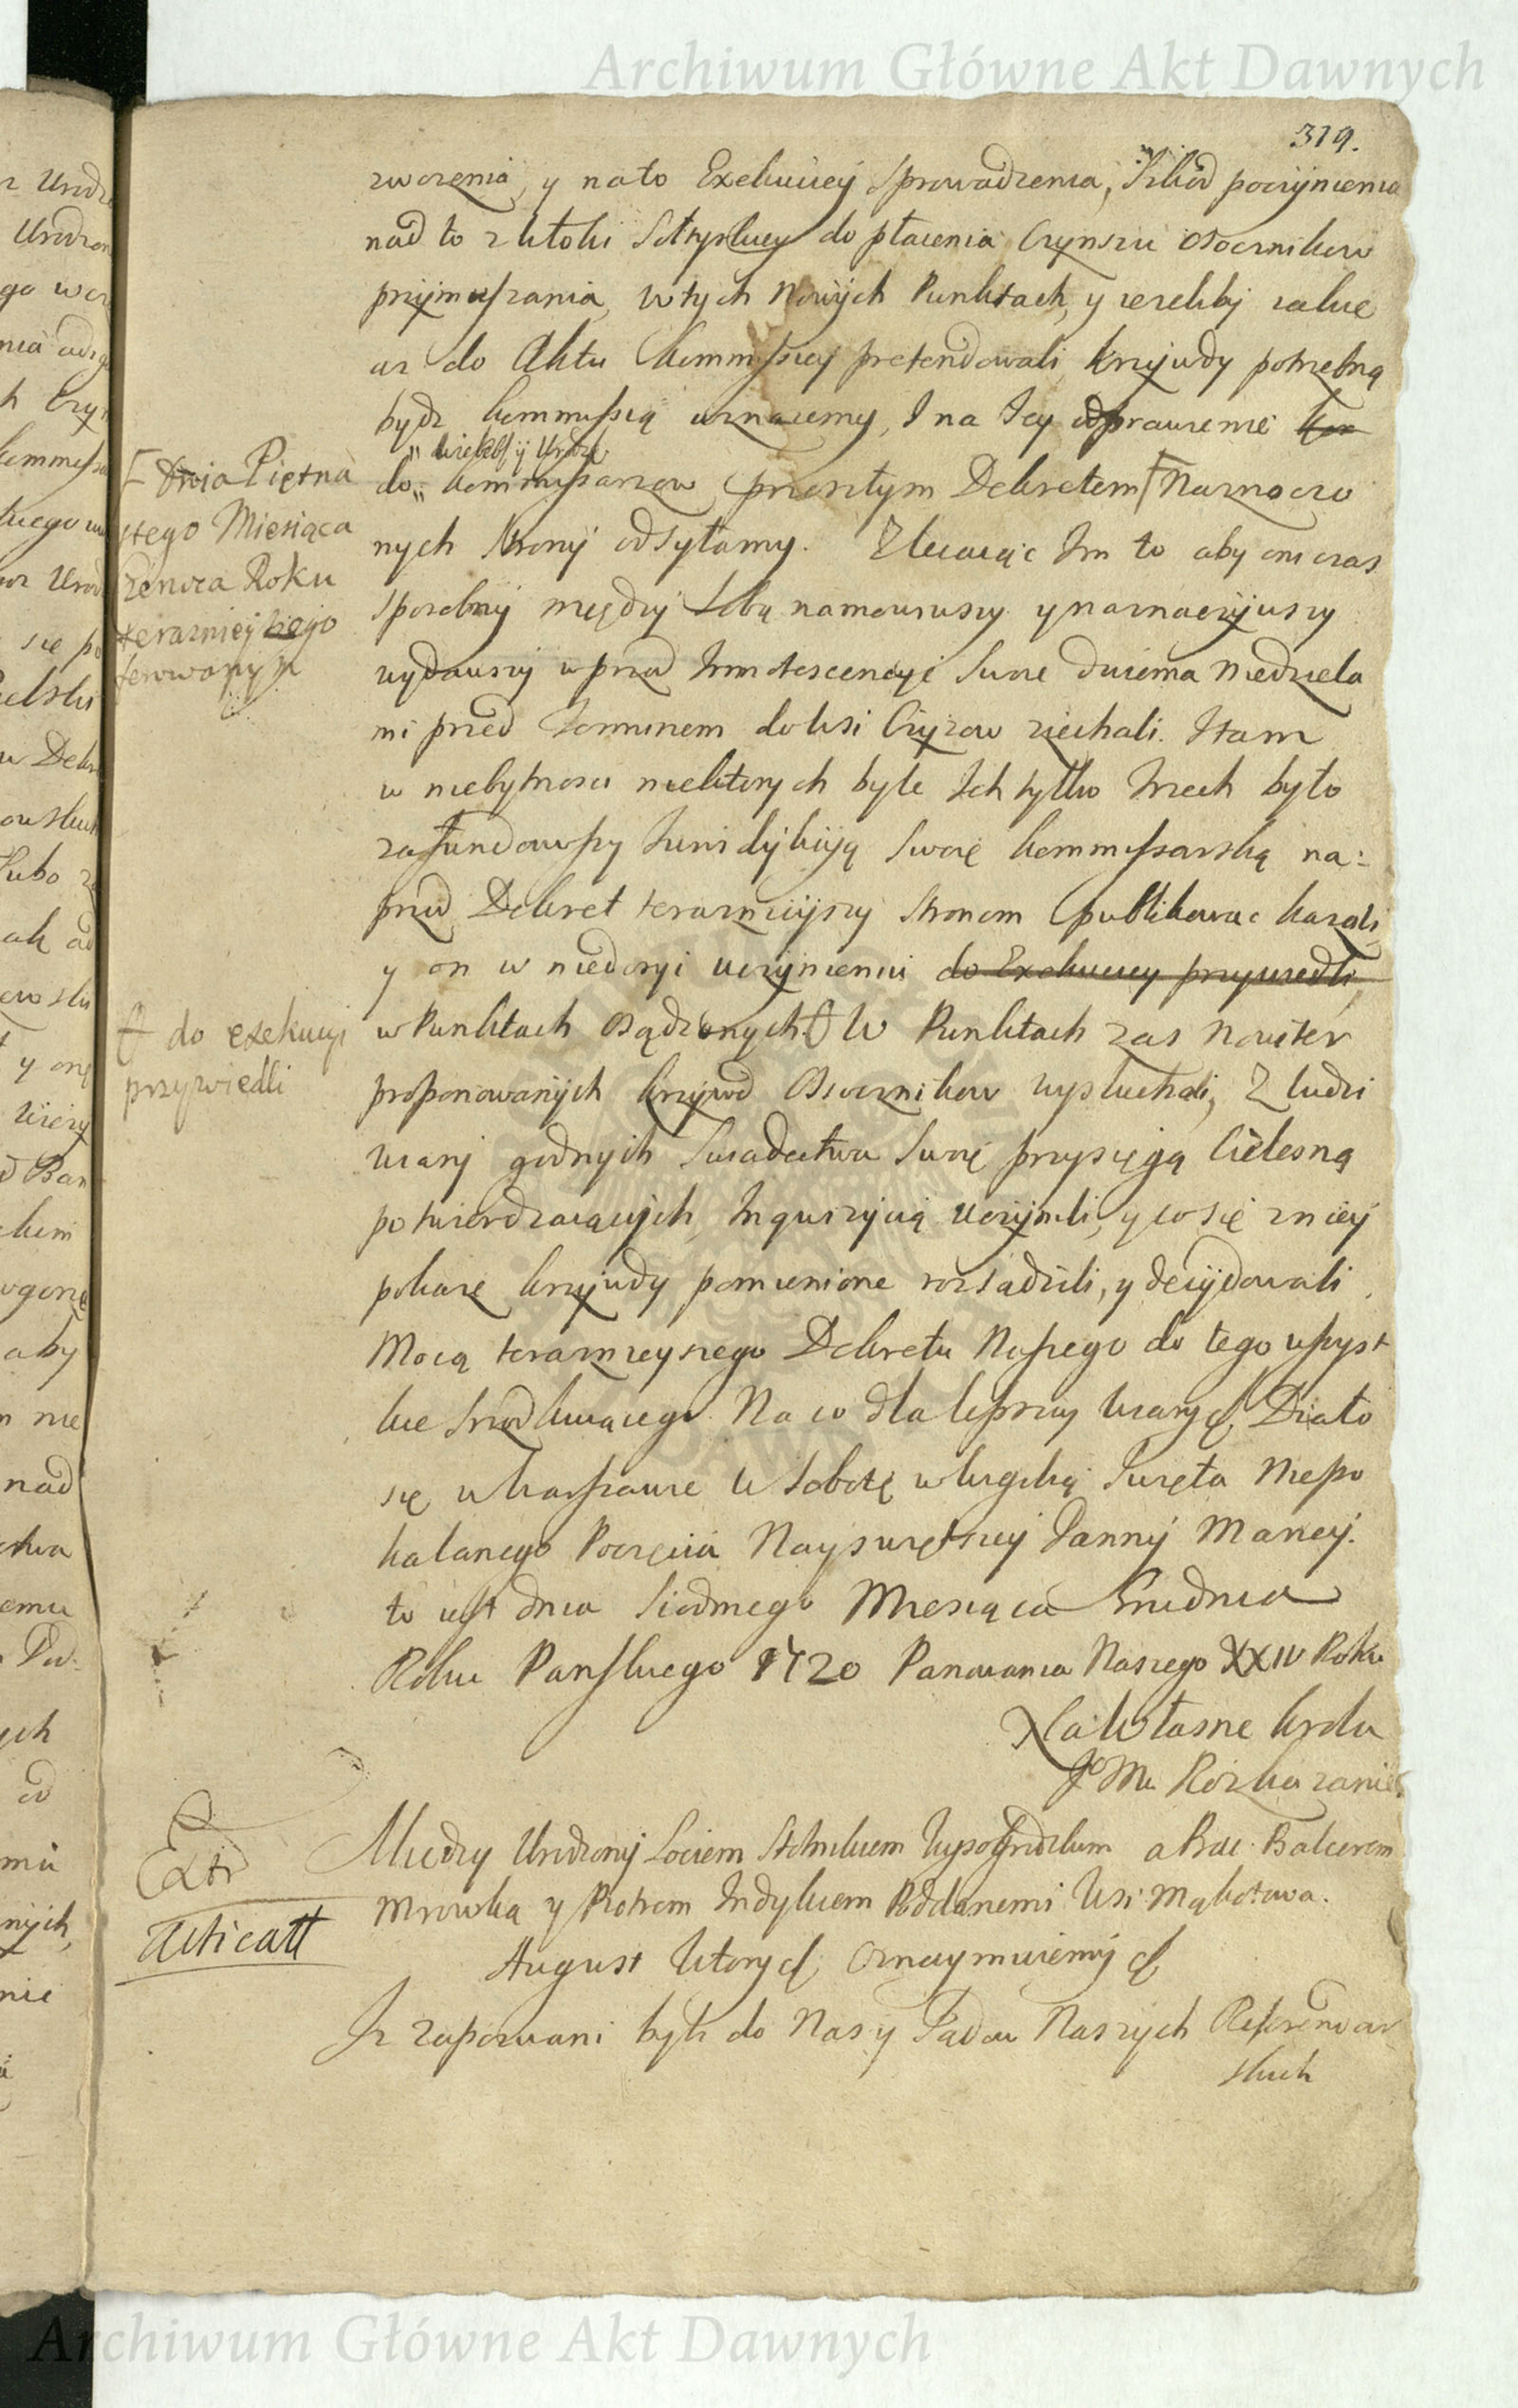 Archiwum Główne Akt Dawnych
319.
zwozenia, y nato Exekucyey Sprowadzenia, Szkod poczynienia
nad to do płacenia Czynszu Osocznikow
przymuszania, w tych Nowych Punktach, y jezeliby jakie
az do Aktu Kommissyey pretendowali krzywdy potrzebną
bydz Kommissią uznaiemy, I na Jey odprawienie
do Kommissarzow przeszłym Dekretem Naznaczo
nych Strony odsyłamy. Zlecaiąc Im to aby oni czas
sposobny między Sobą namowiwszy y naznaczywszy
wydawszy wprzod Innotescencye Swoie dwiema Niedziela
mi przed Terminem do Wsi Czyzow ziechali. I tam
w niebytnosci niektorych byle Ich tylko trzech było
zafundowszy Jurisdykcyą Swoię Kommissarską na:
przod Dekret teraznieyszy Stronom publikowac kazali
y on w niedosyc uczynieniu do Exekucyey przywiedli
w Punktach Osądzonych. W Punktach zas Noviter
proponowanych krzywd Osocznikow wysłuchali, Z ludzi
wiary godnych Swiadectwa Swoię przysięgą Cielesną
potwierdzaiących, Inquizycyą uczynili, y co się z niey
pokaze krzywdy pomienione rozsadzili, y decydowali
Mocą teraznieyszego Dekretu Naszego do tego wszyst
kie Srzodkuiącego. Na co dla lepszey wiary Działo
się w Warszawie W Sobotę w Wigilią Swięta Niepo
kalanego Poczęcia Nayswiętszey Panny Maryey.
to iest dnia Siodmego Miesiąca Grudnia
Roku Panskiego 1720 Panowania Naszego XXIV Roku
Na Własne Krola
Je° Mci Rozkazanie
[ dnia Piętna
stego Miesiąca
Czerwca Roku
teraznieyszego
ferowanym
do exekucyi
przywiedli
Extr
Acticatt
Miedzy Urodzony a Prac. Balcerem
Mrowką y Piotrem Indykiem Poddanemi Wsi Mąkotowa.
August Wtory Oznaymuiemy
Iz zapozwani byli do Nas y Sądow Naszych Referendar
skich
Archiwum Główne Akt Dawnych